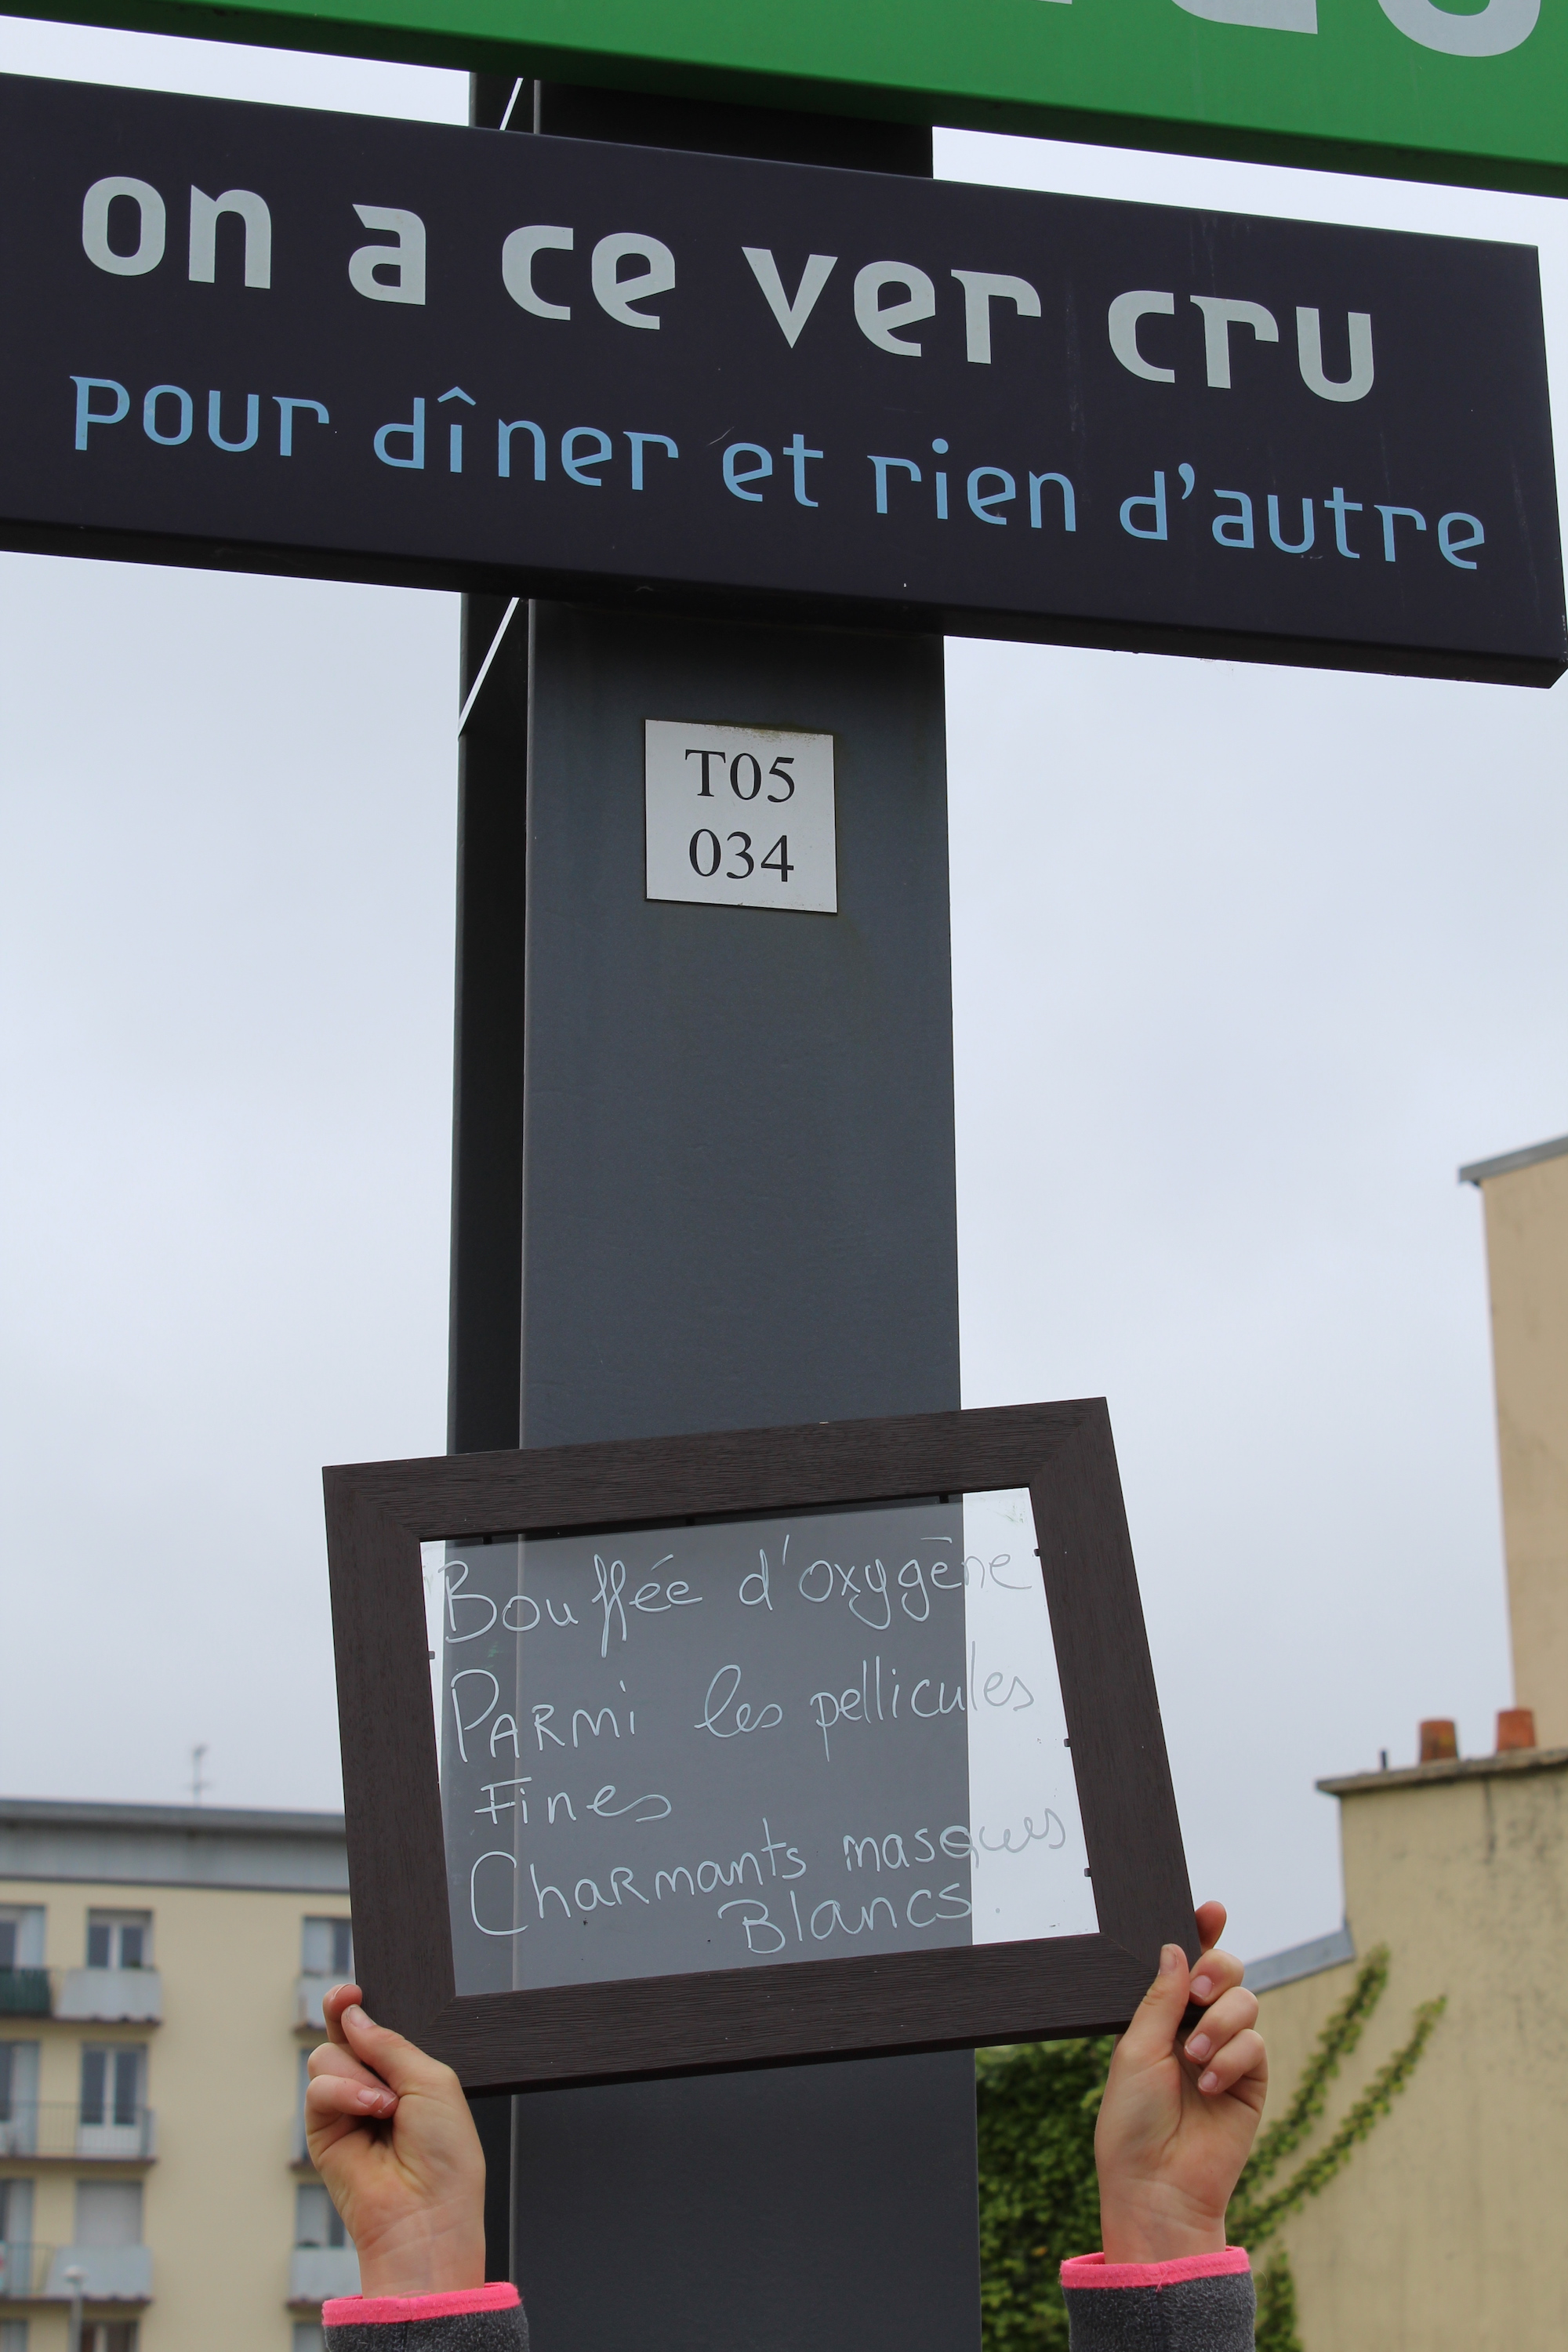 on a ce ver cru
pour dîner et rien d'autre
T05
034
Bouffée d'oxygène
PARMi les pellicules
Fines
ChaRmants masques
Blancs.